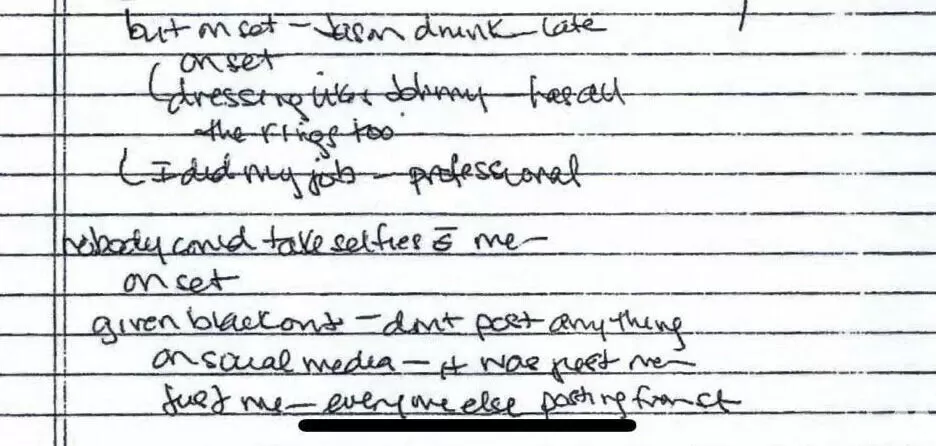 but on set - Jason drunk - late
on set
(dressing like Johnny - has all
the rings too
(I did my job - professional
nobody could take selfies c̄ me -
on set
given blackout - don't post anything
on social media - it was just me -
just me - everyone else posting from set